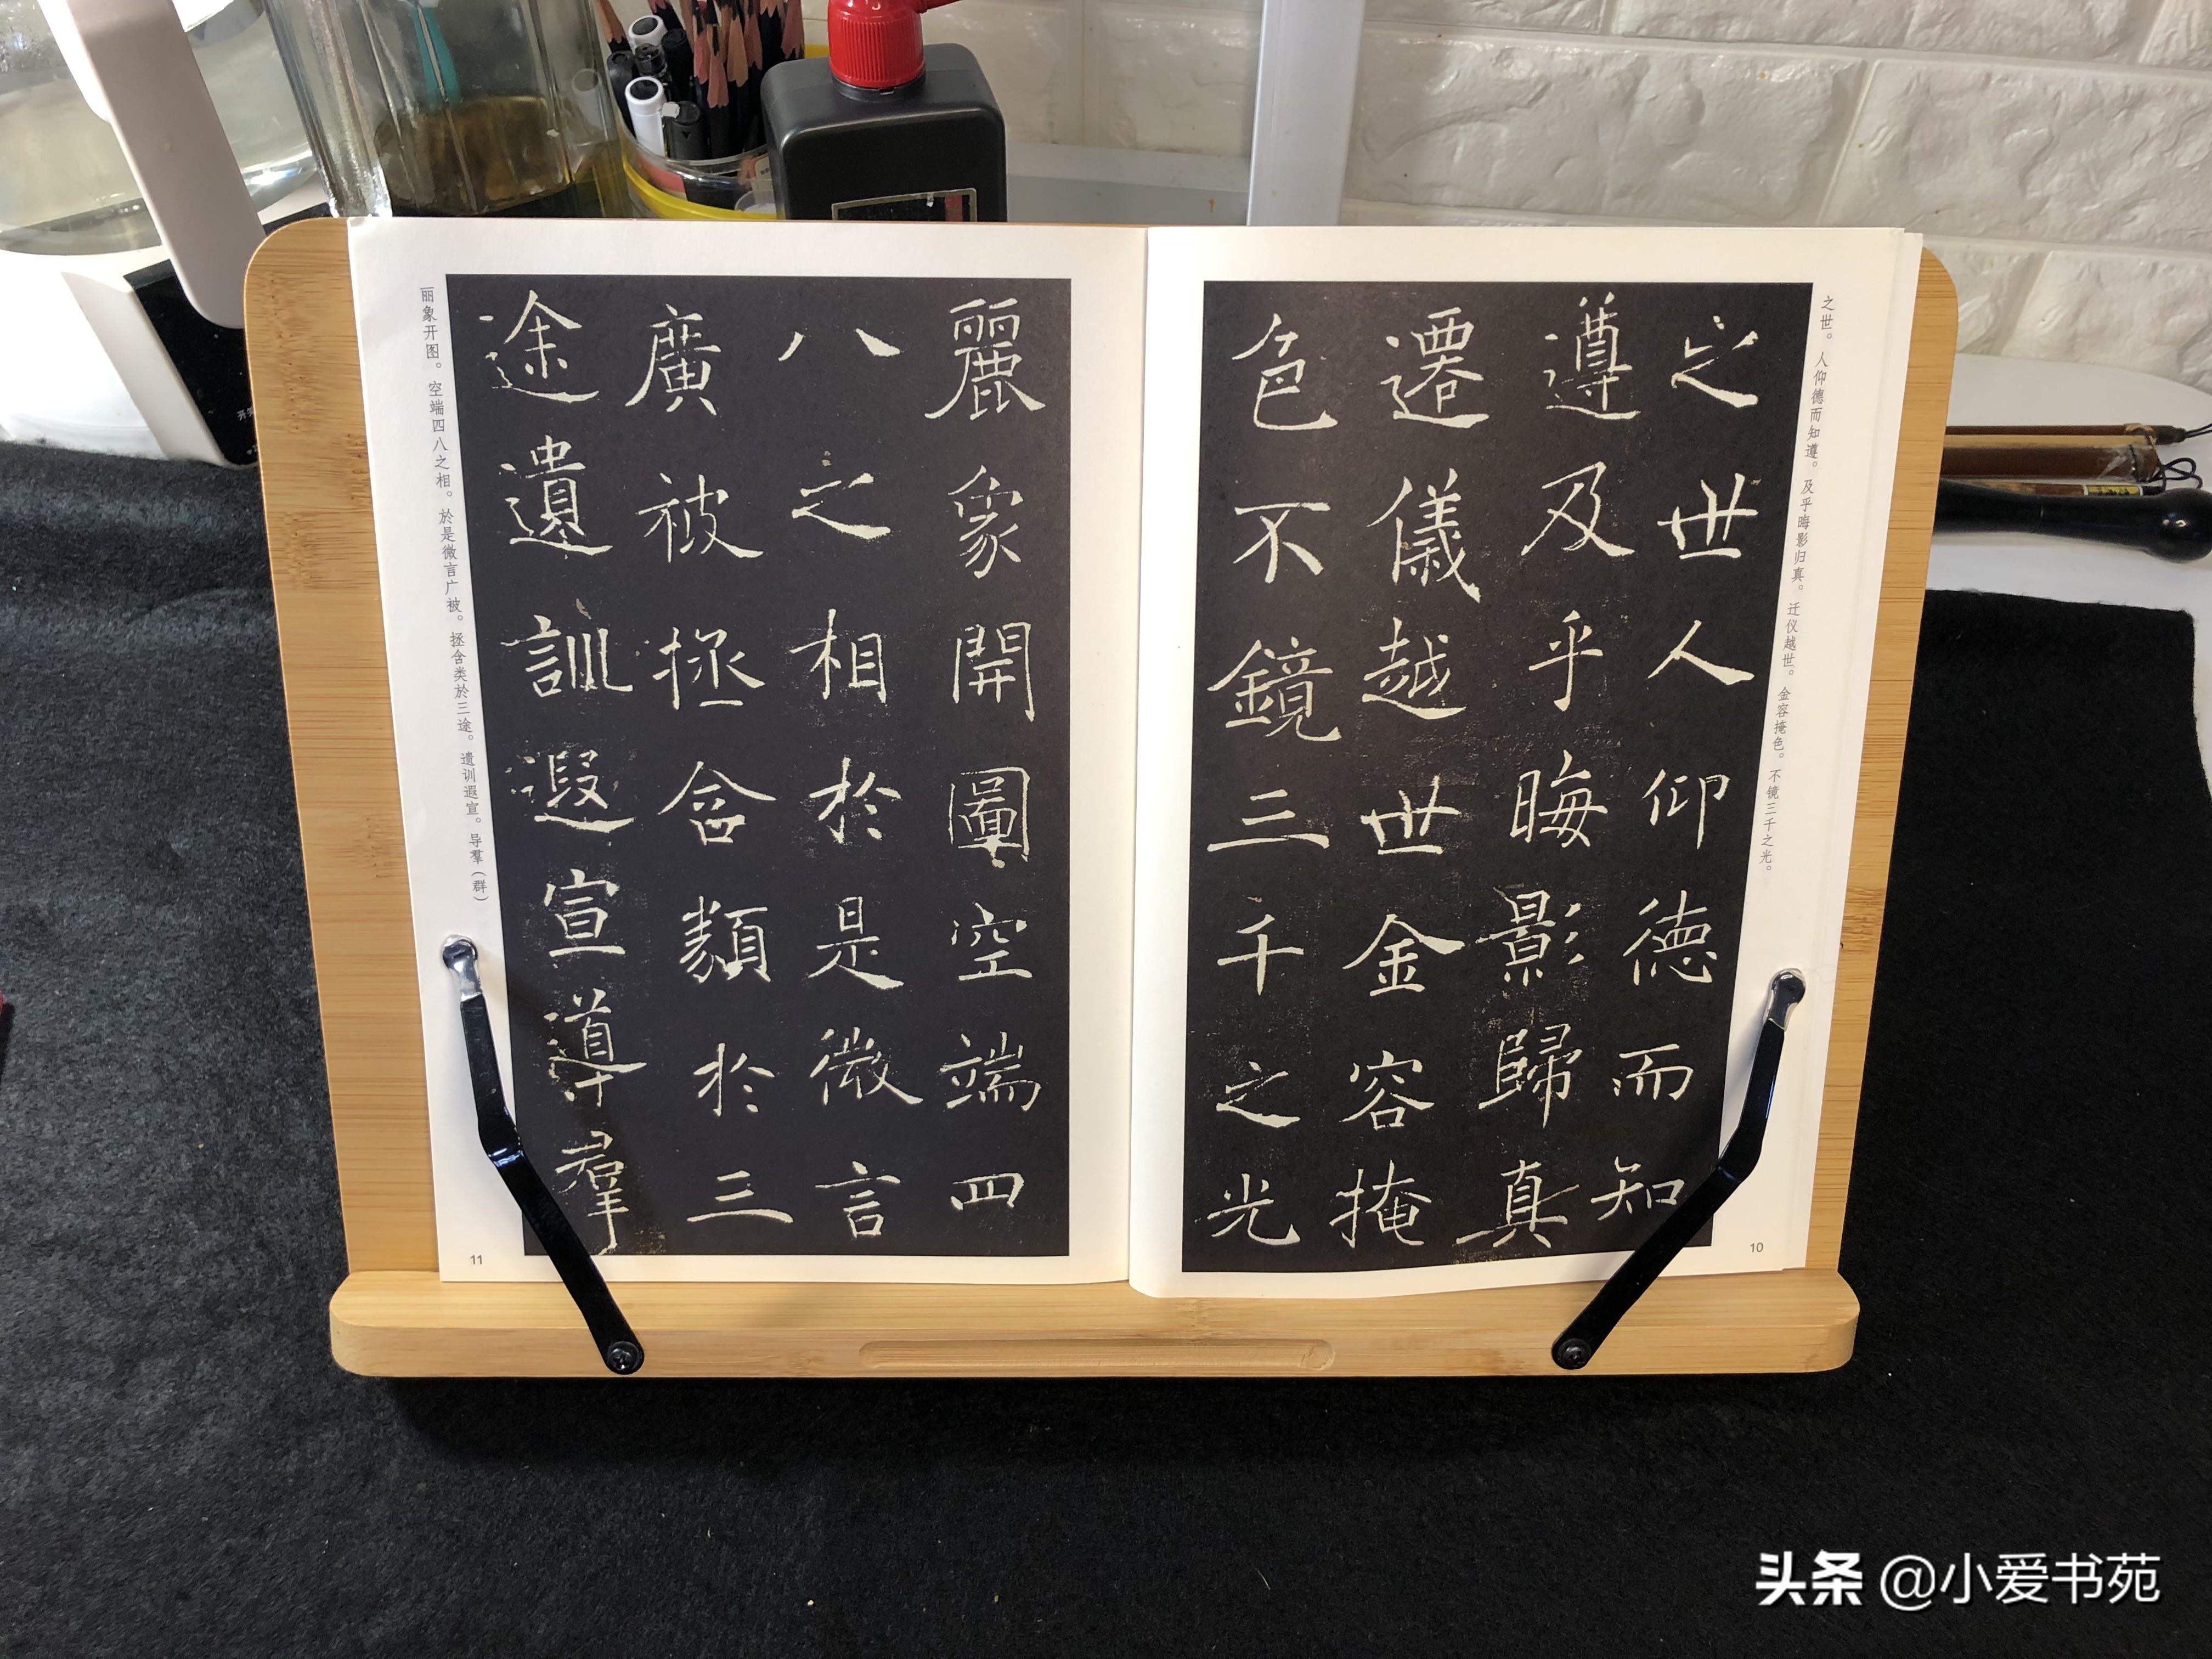 之世人仰德而知
遵及乎晦影歸真
遷儀越世金容掩
色不鏡三千之光
之世。人仰德而知遵。及乎晦影归真。迁仪越世。金容掩色。不镜三千之光。
10
麗象開圖空端四
八之相於是微言
廣被拯含類於三
途遺訓遐宣導羣
丽象开图。空端四八之相。於是微言广被。拯含类於三途。遗训遐宣。导羣（群）
11
头条 @小爱书苑